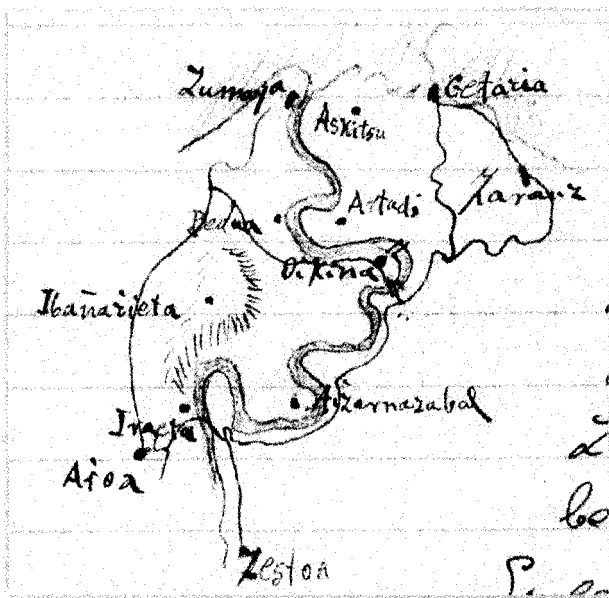 Zumaya
Getaria
Askitsu
Zarauz
Bedua
Artadi
Oikina
Ibañarieta
Aizarnazabal
Iraeta
Aioa
Zestoa